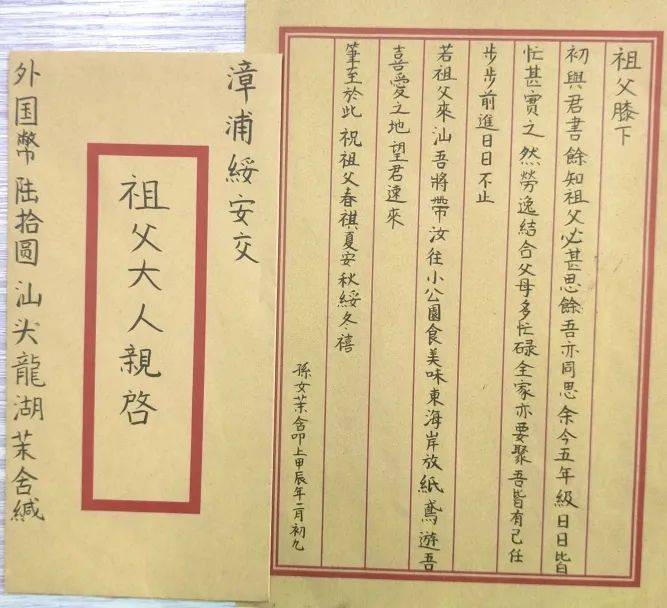 漳浦綏安交
祖父大人親啓
外国幣陆拾圆 汕头龍湖茉含緘
祖父膝下
初與君書餘知祖父必甚思餘吾亦同思余今五年級日日皆
忙甚實之然勞逸結合父母多忙碌全家亦要聚吾皆有己任
步步前進日日不止
若祖父來汕吾將帶汝往小公園食美味東海岸放紙鳶遊吾
喜愛之地望君速來
筆至於此祝祖父春祺夏安秋綏冬禧
孫女茉含叩上甲辰年二月初九